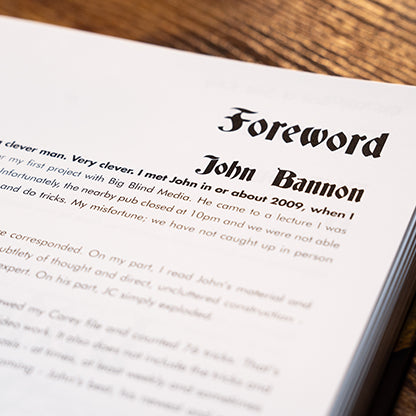 Foreword
John Bannon
clever man. Very clever. I met John in or about 2009, when I
my first project with Big Blind Media. He came to a lecture I was
Unfortunately, the nearby pub closed at 10pm and we were not able
and do tricks. My misfortune; we have not caught up in person
corresponded. On my part, I read John's material and
subtlety of thought and direct, uncluttered construction -
expert. On his part, JC simply exploded.
my Carey file and counted 76 tricks. That's
video work. It also does not include the tricks and
at times, at least weekly and sometimes
John's best, his newest and